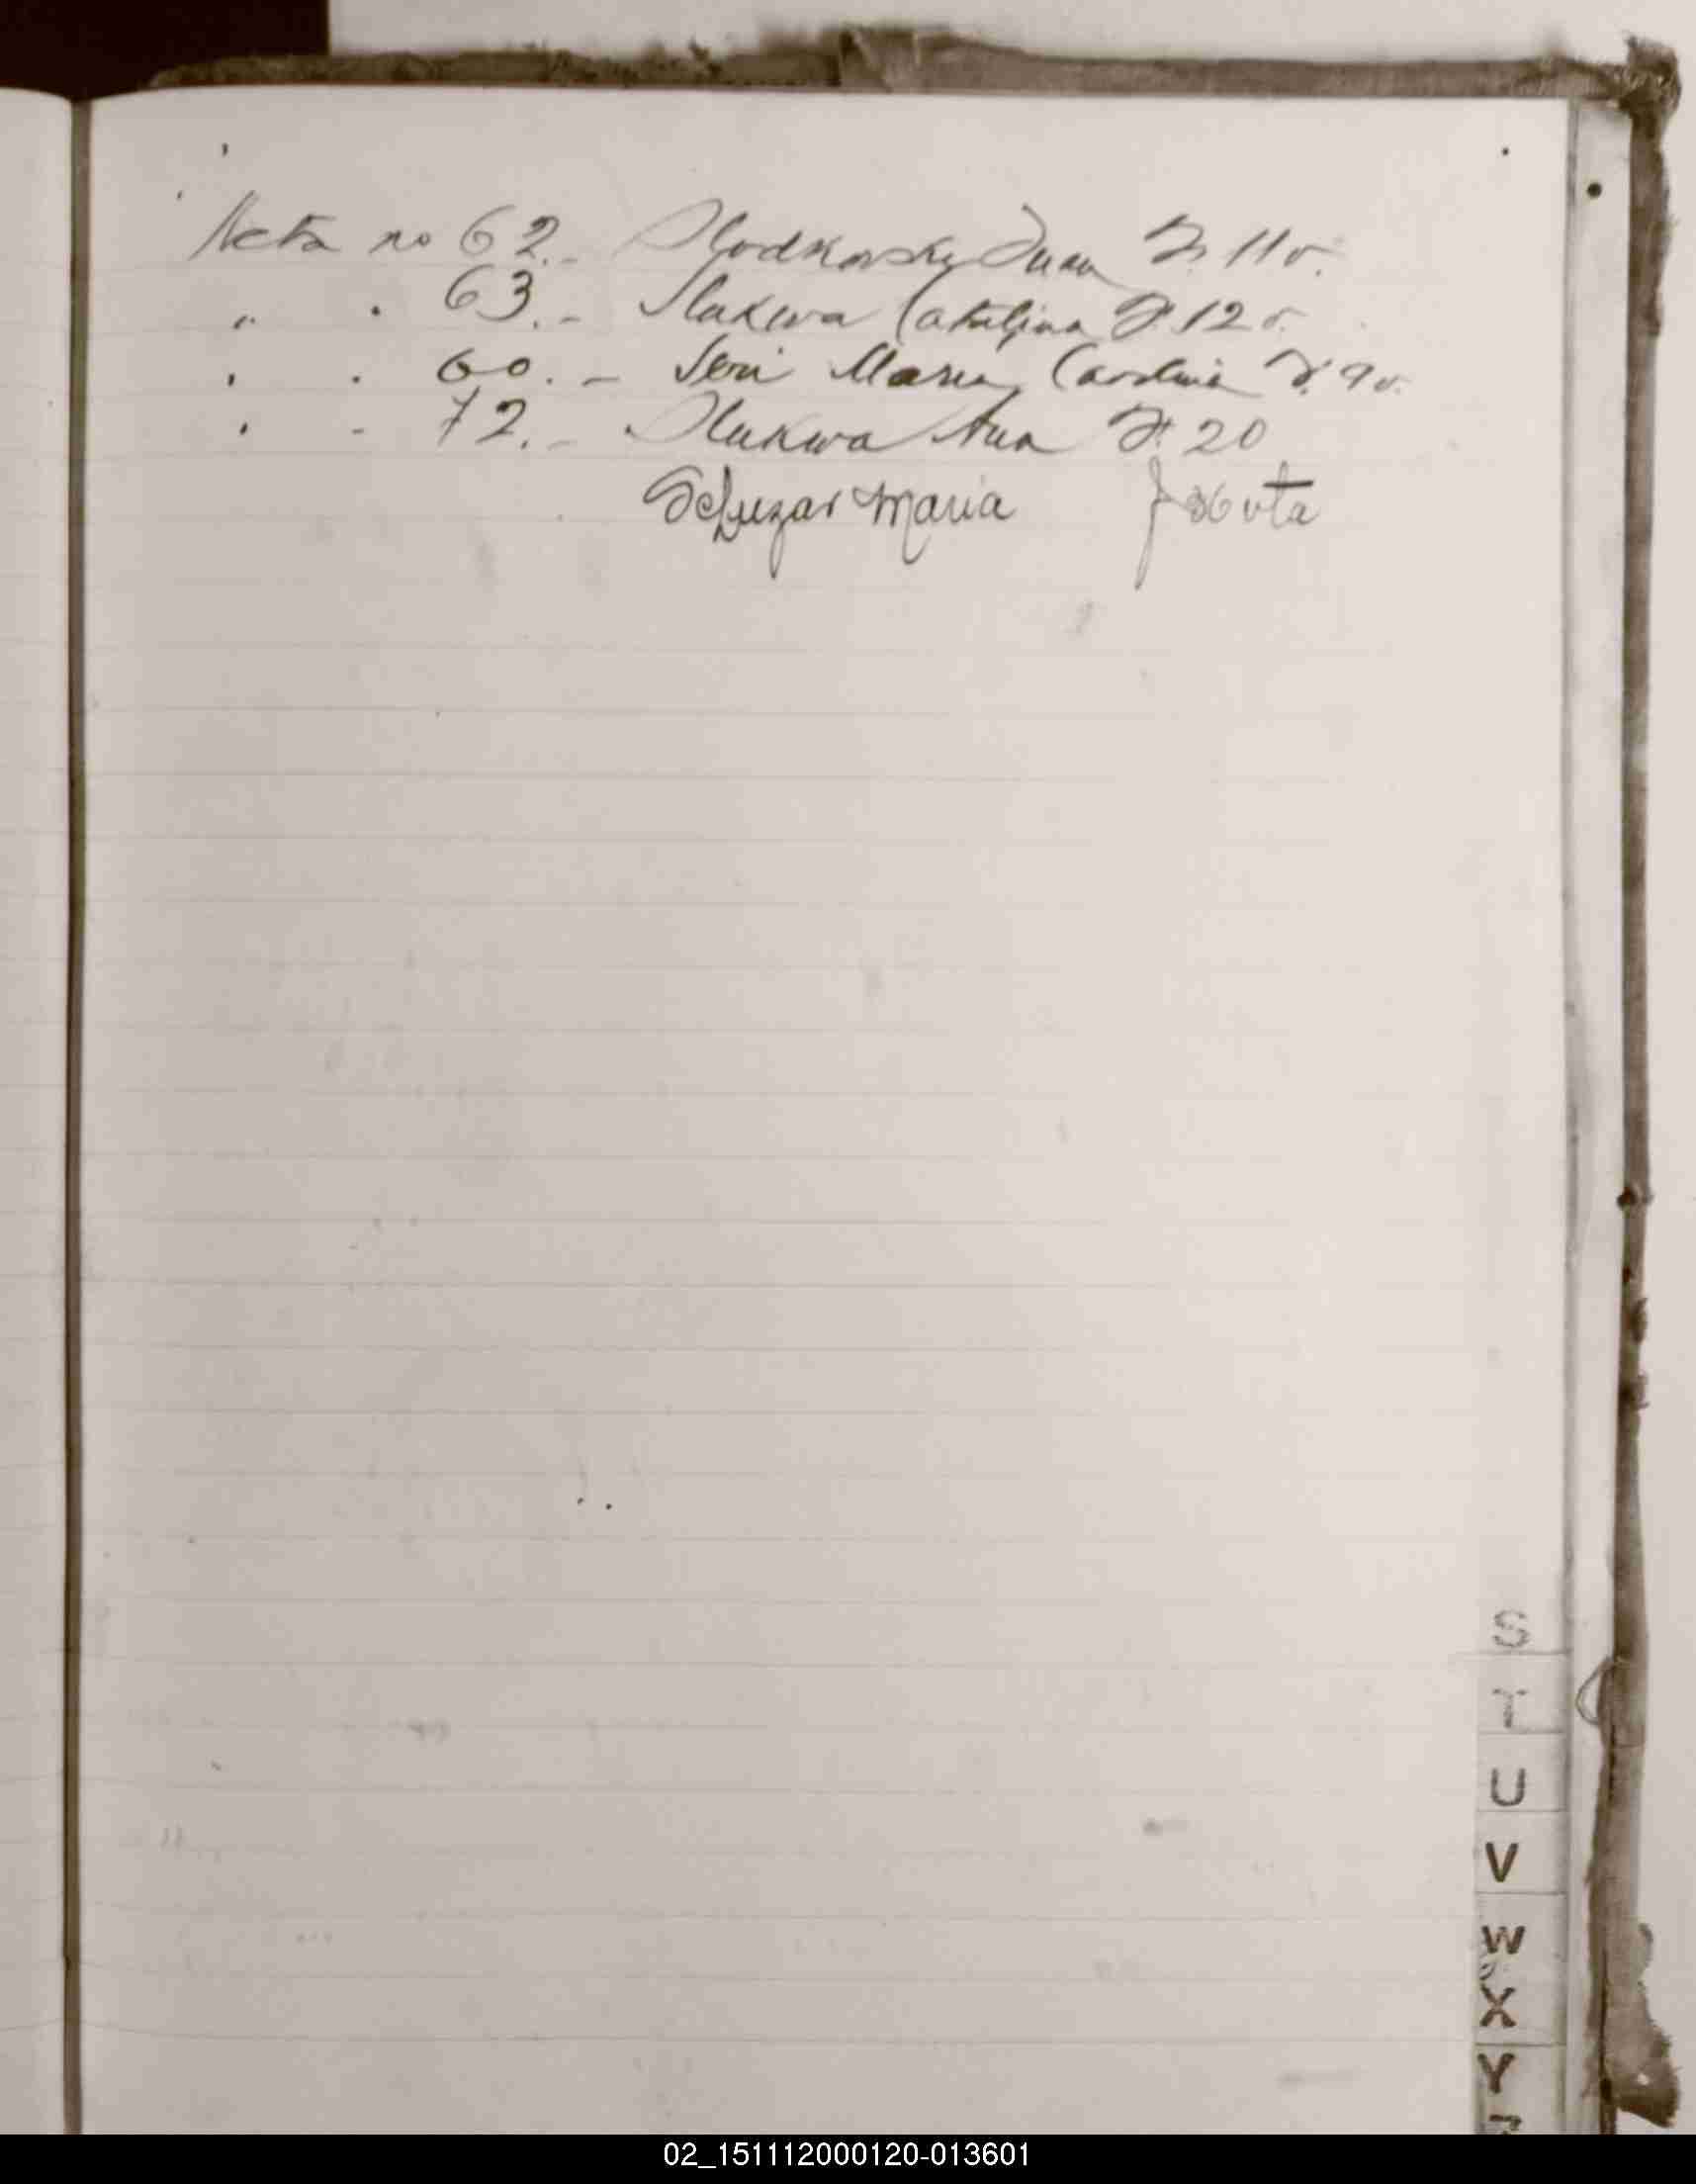 Acta no 62.- Slodkovsky Juan F. 11 v.
" . 63.- Slukwa Catalina F. 12 v.
" . 60.- Seri Maria Carolina F. 9 v.
" - 72.- Slukwa Ana F. 20
Maria f 36 vta
S
T
U
V
W
X
Y
Z
02_151112000120-013601